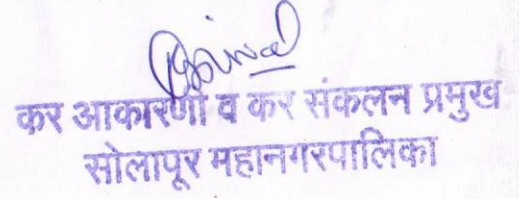 कर आकारणी व कर संकलन प्रमुख
सोलापूर महानगरपालिका